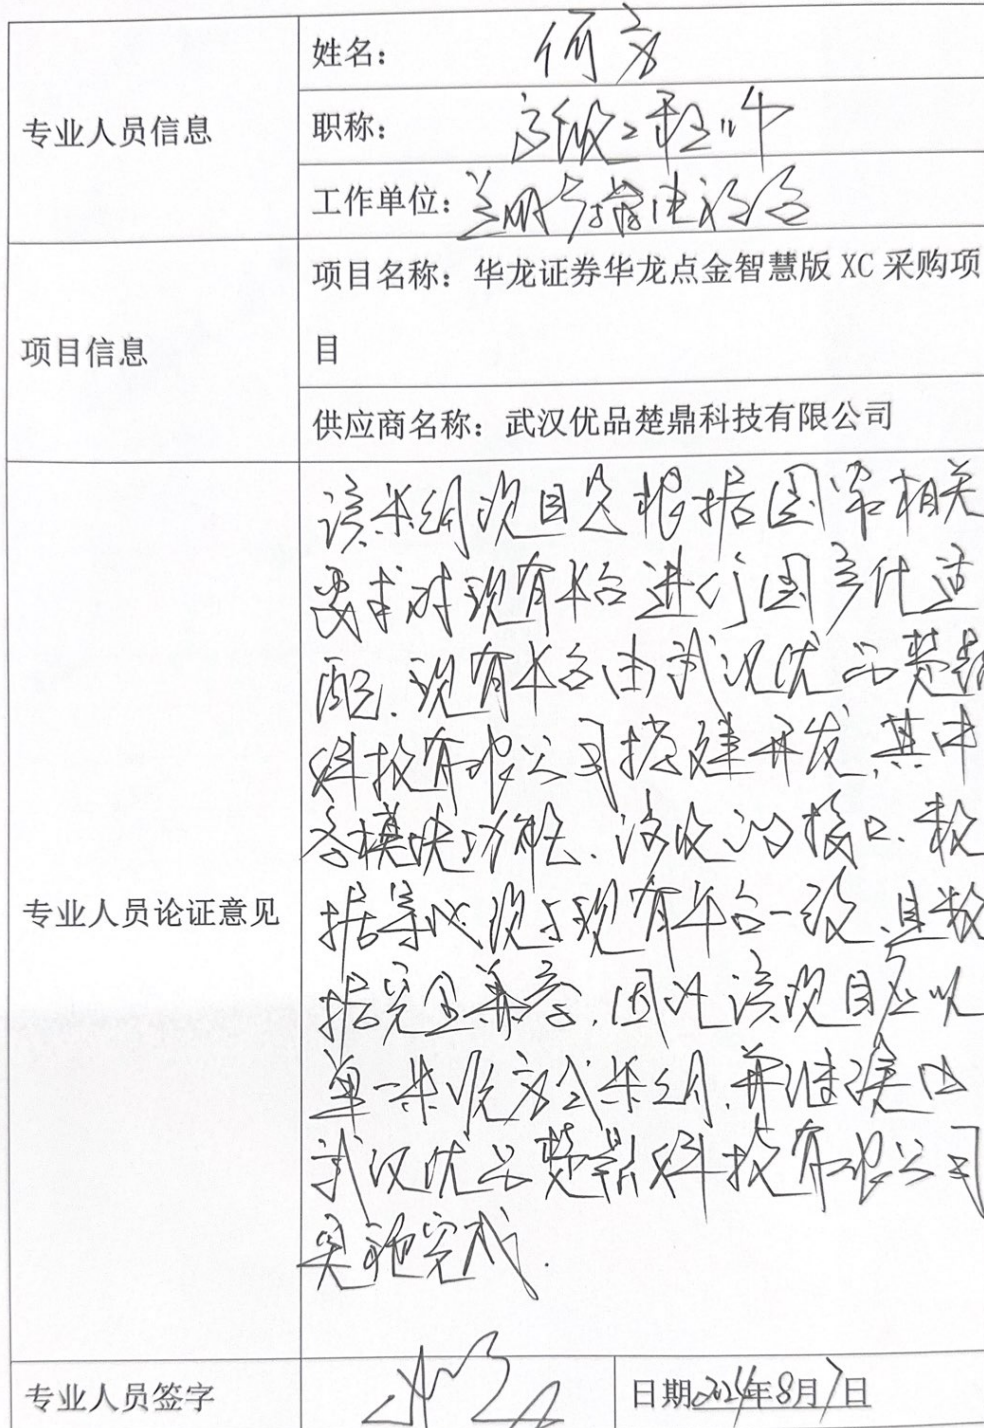 专业人员信息
姓名：何方
职称：高级工程师
工作单位：
项目信息
项目名称：华龙证券华龙点金智慧版 XC 采购项
目
供应商名称：武汉优品楚鼎科技有限公司
专业人员论证意见
该采购项目是根据国家相关
要求对现有平台进行国产化适
配，现有平台由武汉优品楚鼎
科技有限公司搭建开发，其中
各模块功能、涉及的接口、数
据等必须与现有平台一致，且数
据完全兼容，因此该项目应以
单一来源方式采购，并继续由
武汉优品楚鼎科技有限公司
实施完成.
专业人员签字
日期2024年8月7日